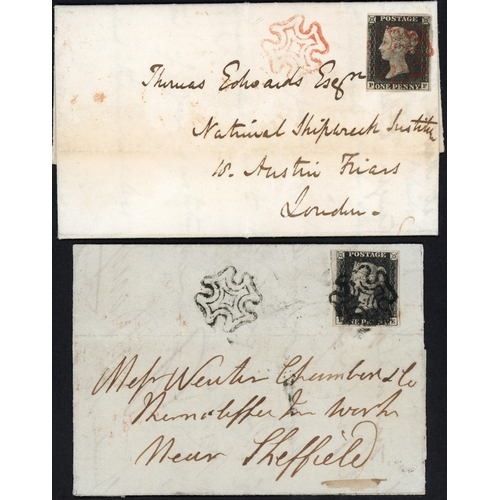 POSTAGE
ONE PENNY
Thomas Edwards Esqr
National Shipwreck Institu
18. Austin Friars
London.
POSTAGE
NE PENN
Messrs Chambers & Co
Thorncliffe Iron Works
Near Sheffield